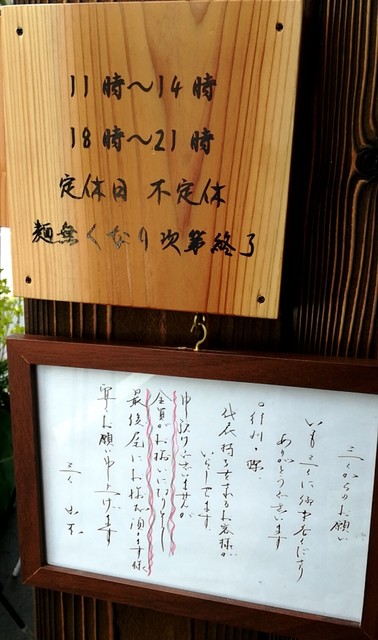 11時～14時
18時～21時
定休日 不定休
麺無くなり次第終了
三くからのお願い
いつも三くに御来店くださり
ありがとうございます
行列の際
代表待ちをするお客様が
いらっしゃいます
申し訳ございませんが
全員がお揃いになりましたら
最後尾にお並び頂きます様
宜しくお願い申し上げます
三く 店主